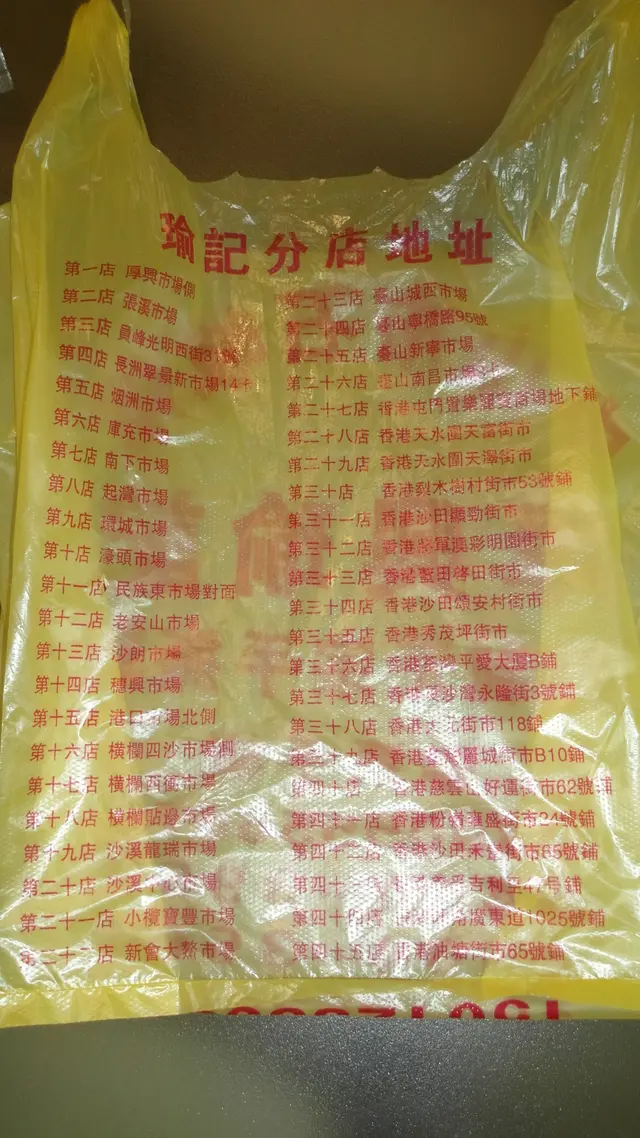 瑜記分店地址
第一店 厚興市場側
第二店 張溪市場
第三店 員峰光明西街31號
第四店 長洲翠景新市場14卡
第五店 烟洲市場
第六店 庫充市場
第七店 南下市場
第八店 起灣市場
第九店 環城市場
第十店 濠頭市場
第十一店 民族東市場對面
第十二店 老安山市場
第十三店 沙朗市場
第十四店 穗興市場
第十五店 港口市場北側
第十六店 橫欄四沙市場側
第十七店 橫欄西衝市場
第十八店 橫欄貼邊市場
第十九店 沙溪龍瑞市場
第二十店 沙溪中心市場
第二十一店 小欖寶豐市場
第二十二店 新會大熬市場
第二十三店 臺山城西市場
第二十四店 臺山寧橋路95號
第二十五店 臺山新寧市場
第二十六店 臺山南昌市場
第二十七店 香港屯門置樂 商場地下鋪
第二十八店 香港天水圍天富街市
第二十九店 香港天水圍天澤街市
第三十店 香港梨木樹村街市53號鋪
第三十一店 香港沙田顯勁街市
第三十二店 香港將軍澳彩明園街市
第三十三店 香港藍田啓田街市
第三十四店 香港沙田頌安村街市
第三十五店 香港秀茂坪街市
第三十六店 香港荃灣平愛大厦B鋪
第三十七店 香港 沙灣永隆街3號鋪
第三十八店 香港大元街市118鋪
第三十九店 香港 麗城街市B10鋪
第四十店 香港慈雲山好運街市62號鋪
第四十一店 香港粉嶺 盛街市24號鋪
第四十二店 香港沙田禾 街市85號鋪
第四十三店 吉利 47號鋪
第四十四店 廣東道1025號鋪
第四十五店 香港油塘街市65號鋪